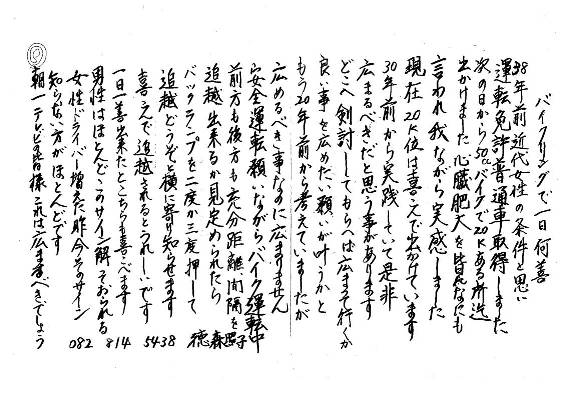 バイクリングで一日何善
38年前近代女性の条件と思い
運転免許普通車取得しました
次の日から50ccバイクで20Kある所迄
出かけました 心臓肥大を皆んなにも
言われ我ながら実感しました
現在20K位は喜こんで出かけています
30年前から実践していて是非
広まるべきだと思う事があります
どこへ検討してもらへば広まって行くか
良い事を広めたい願いが叶うかと
もう20年前から考えていましたが
広めるべき事なのに広まりません
安全運転願いながらバイク運転中
前方も後方も充分距離間隔を
追越出来るか見定められたら
バックランプを二度か三度押して
追越どうぞと横に寄り知らせます
喜こんで追越されるとうれしいです
一日一善出来たとこちらも喜こべます
男性はほとんどこのサイン解っておられる
女性ドライバー増えた昨今そのサイン
知らない方がほとんどです
朝一テレビの皆様これは広まるべきでしょう
徳森照子
082 814 5438